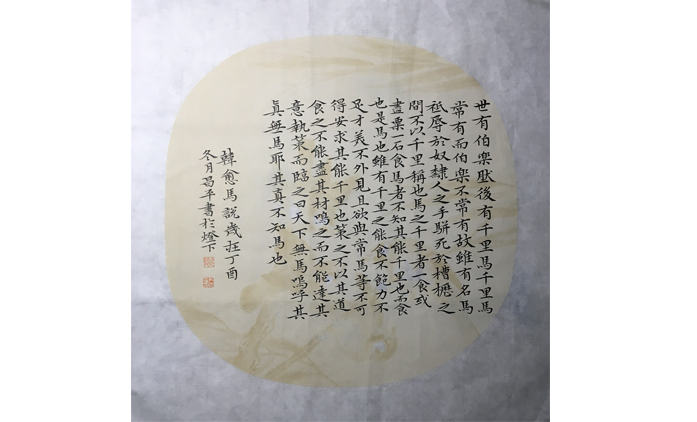 世有伯樂肰後有千里馬千里馬
常有而伯樂不常有故雖有名馬
祗辱於奴隸人之手駢死於槽櫪之
間不以千里稱也馬之千里者一食或
盡粟一石食馬者不知其能千里也而食
也是馬也雖有千里之能食不飽力不
足才美不外見且欲與常馬等不可
得安求其能千里也策之不以其道
食之不能盡其材鳴之而不能達其
意執策而臨之曰天下無馬嗚乎其
眞無馬耶其真不知馬也
韓愈馬說歲在丁酉
冬月昌平書於燈下